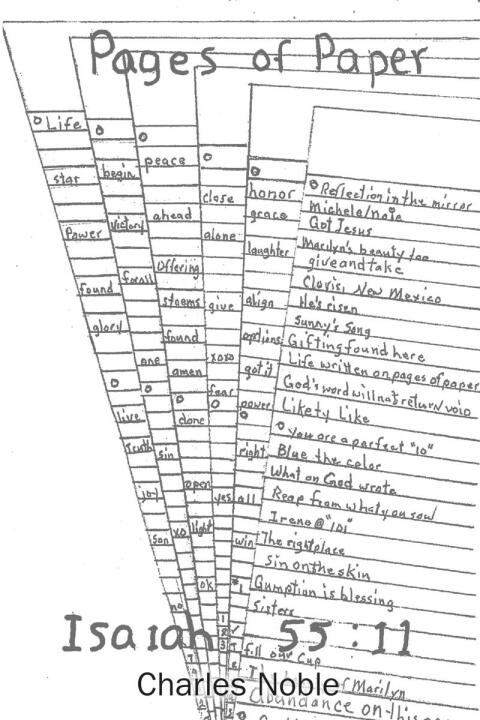 Pages of Paper
Life
star
Power
found
glory
live
Truth
joy
son
no
begin
victory
for all
one
sin
xo
peace
ahead
Offering
found
amen
done
open
light
close
alone
give
xoxo
fear
yes
ok
honor
grace
laughter
align
options
got it
power
right
all
win
#1
Reflection in the mirror
Got Jesus
Marilyn's beauty too
give and take
Clovis, New Mexico
He's risen
Sunny's Song
Gifting found here
Life written on pages of paper
God's word will not return void
Likety Like
You are a perfect "10"
Blue the color
What on God wrote
Reap from what you sow
Irene @ "101"
The right place
Sin on the skin
Gumption is blessing
Sisters
Isaiah 55:11
fill our cup
of Marilyn
Charles Noble
abundance on this